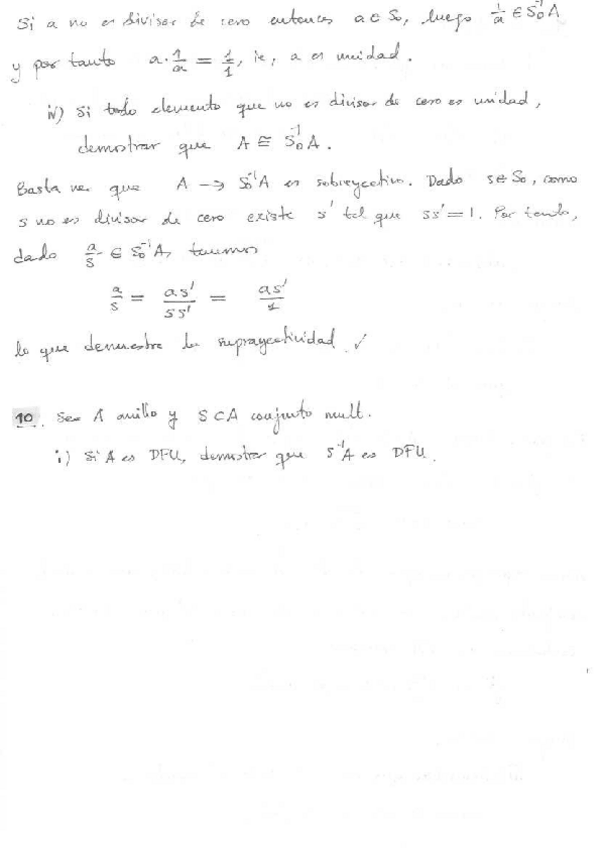 Si a no es divisor de cero entonces a ∈ S₀, luego 1/a ∈ S₀⁻¹A
y por tanto a · 1/a = 1/1, ie, a es unidad.
iv) Si todo elemento que no es divisor de cero es unidad,
demostrar que A ≅ S₀⁻¹A.
Basta ver que A → S₀⁻¹A es sobreyectivo. Dado s ∈ S₀, como
s no es divisor de cero existe s' tal que ss' = 1. Por tanto,
dado a/s ∈ S₀⁻¹A, tenemos
a/s = as'/ss' = as'/1
lo que demuestra la suprayectividad ✓
10. Sea A anillo y S ⊂ A conjunto mult.
i) Si A es DFU, demostrar que S⁻¹A es DFU.